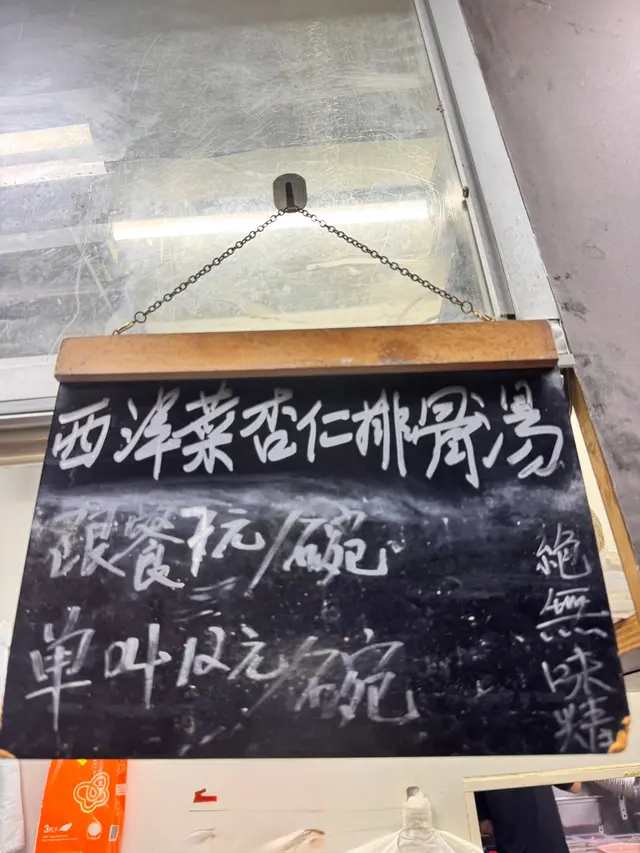 西洋菜杏仁排骨湯
跟餐7元/碗
单叫12元/碗
絕無味精
3PLY